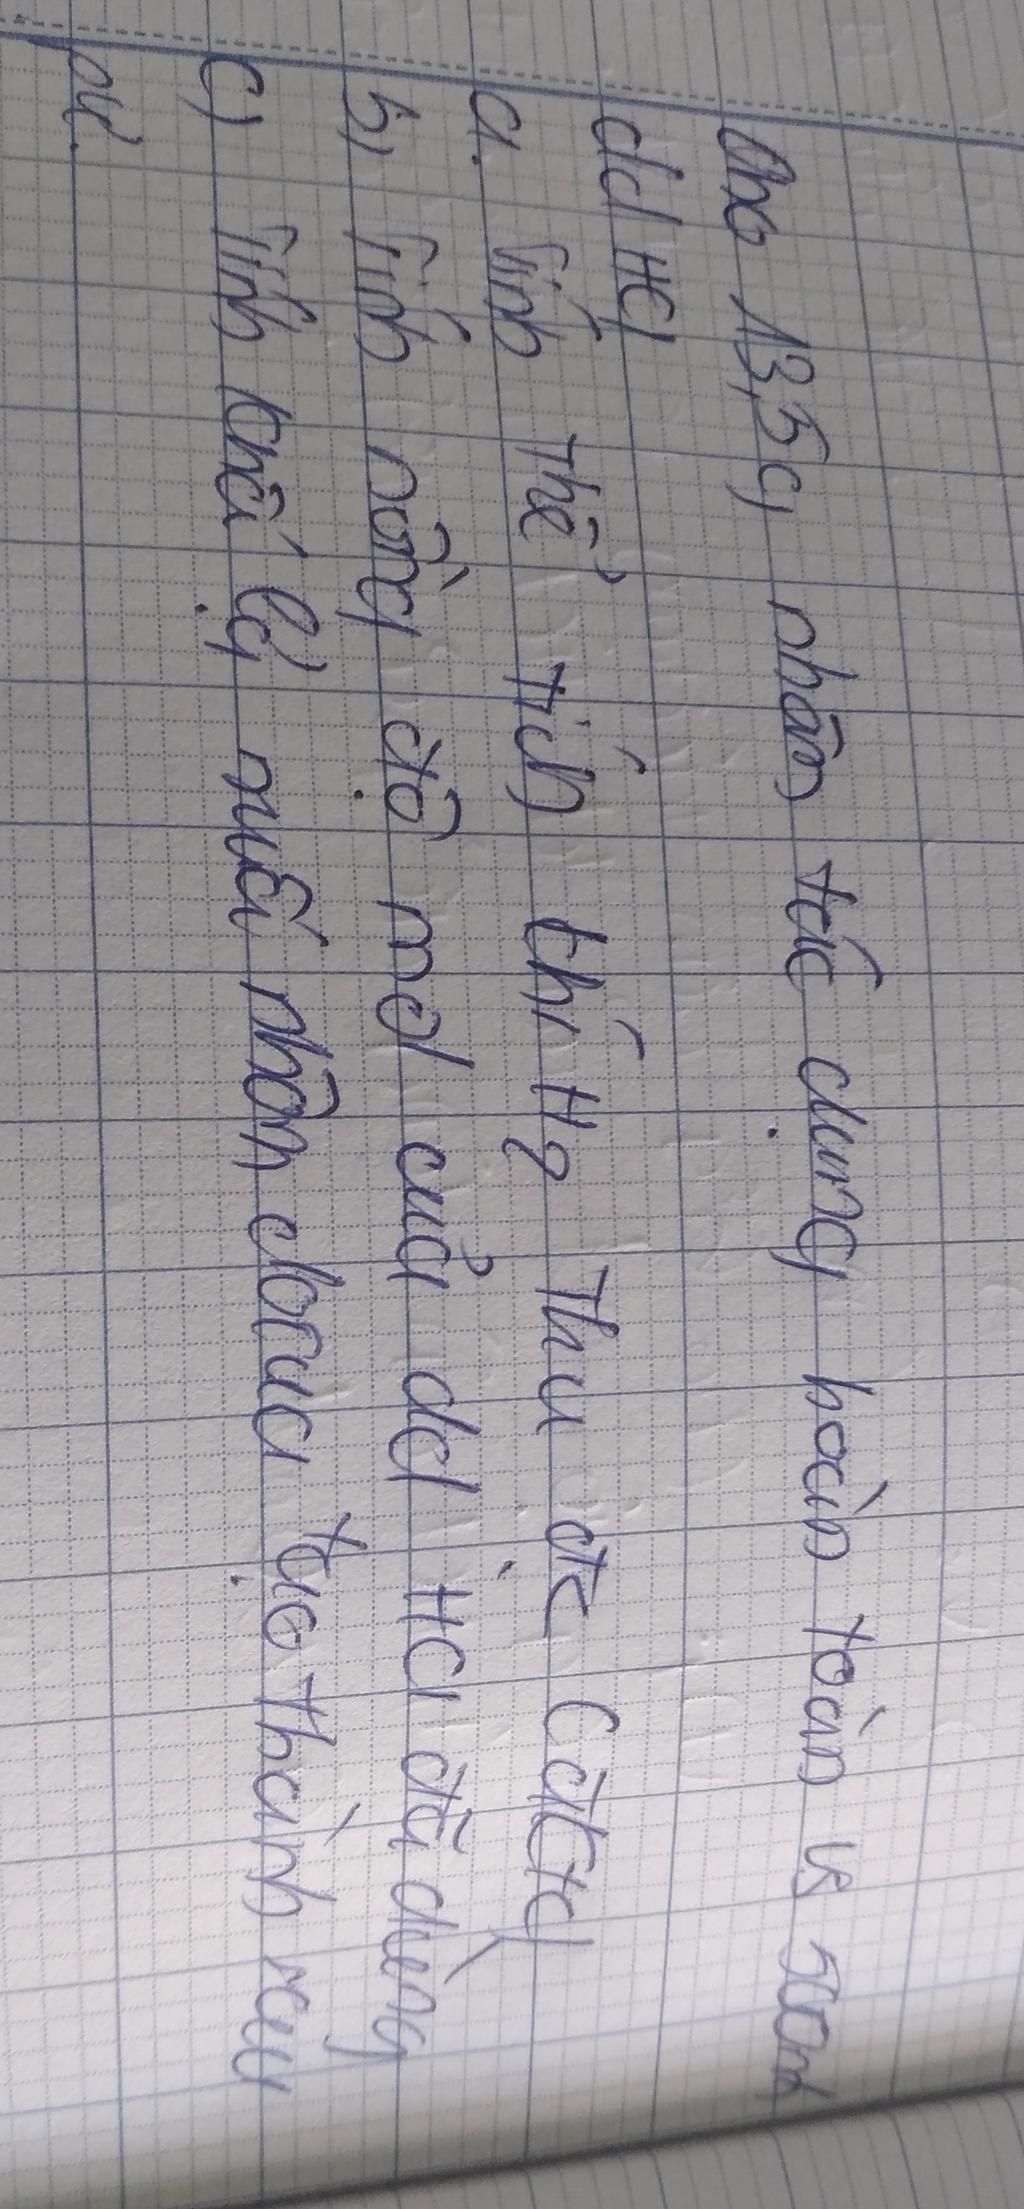 Cho 13,5g nhôm tác dụng hoàn toàn vs 500ml
dd HCl
a. Tính Thể tích khí H2 Thu đc (ở đktc)
b, Tính nồng độ mol của dd HCl đã dùng
c) Tính khối lg muối nhôm clorua tạo thành sau
pứ.